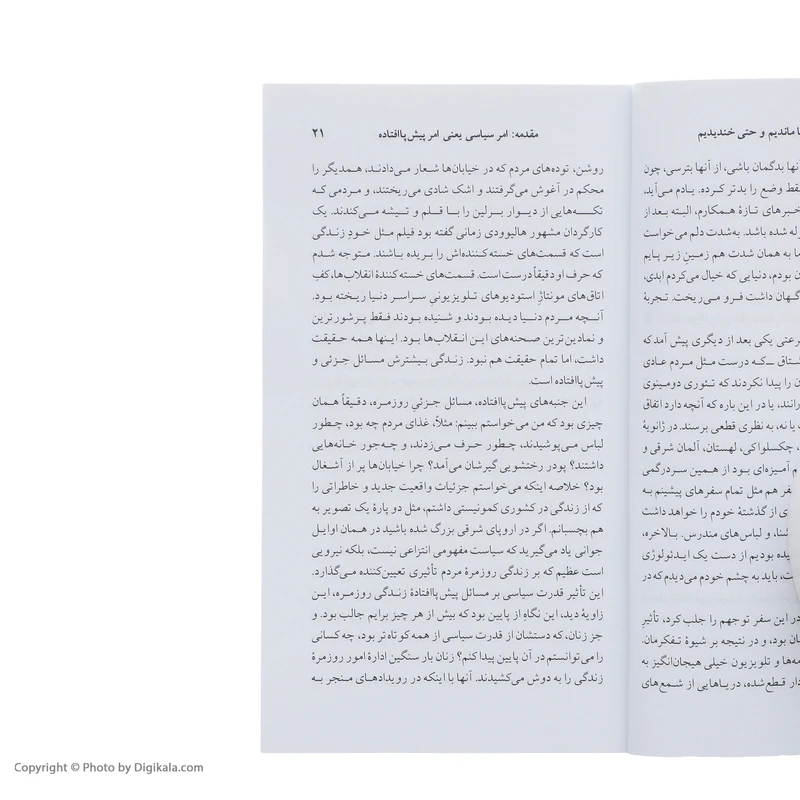 ا ماندیم و حتی خندیدیم
نها بدگمان باشی، از آنها بترسی، چون
قط وضع را بدتر کرده. یادم می‌آید،
خبرهای تازهٔ همکارم، البته بعد از
له شده باشد. به‌شدت دلم می‌خواست
ما به همان شدت هم زمینِ زیر پایم
ن بودم، دنیایی که خیال می‌کردم ابدی،
گهان داشت فرو می‌ریخت. تجربهٔ
رعتی یکی بعد از دیگری پیش آمد که
شتاق ــ که درست مثل مردم عادی
ن را پیدا نکردند که تئوری دومینوی
رانند، یا در این باره که آنچه دارد اتفاق
ت یا نه، به نظری قطعی برسند. در ژانویهٔ
، چکسلواکی، لهستان، آلمان شرقی و
م آمیزه‌ای بود از همین سردرگمی
فر هم مثل تمام سفرهای پیشینم به
ی از گذشتهٔ خودم را خواهد داشت
شنا، و لباس‌های مندرس. بالاخره،
یده بودیم از دست یک ایدئولوژی
ت، باید به چشم خودم می‌دیدم که در
در این سفر توجهم را جلب کرد، تأثیرِ
ان بود، و در نتیجه بر شیوهٔ تفکرمان.
مه‌ها و تلویزیون خیلی هیجان‌انگیز به
دار قطع‌شده، دریاهایی از شمع‌های
مقدمه: امر سیاسی یعنی امر پیش‌پاافتاده ۲۱
روشن، توده‌های مردم که در خیابان‌ها شعار می‌دادند، همدیگر را
محکم در آغوش می‌گرفتند و اشک شادی می‌ریختند، و مردمی که
تکه‌هایی از دیوار برلین را با قلم و تیشه می‌کندند. یک
کارگردان مشهور هالیوودی زمانی گفته بود فیلم مثل خودِ زندگی
است که قسمت‌های خسته‌کننده‌اش را بریده باشند. متوجه شدم
که حرف او دقیقاً درست است. قسمت‌های خسته‌کنندهٔ انقلاب‌ها، کفِ
اتاق‌های مونتاژِ استودیوهای تلویزیونیِ سراسر دنیا ریخته بود.
آنچه مردم دنیا دیده بودند و شنیده بودند فقط پرشورترین
و نمادین‌ترین صحنه‌های این انقلاب‌ها بود. اینها همه حقیقت
داشت، اما تمام حقیقت هم نبود. زندگی بیشترش مسائل جزئی و
پیش‌پاافتاده است.
این جنبه‌های پیش‌پاافتاده، مسائل جزئیِ روزمره، دقیقاً همان
چیزی بود که من می‌خواستم ببینم: مثلاً، غذای مردم چه بود، چطور
لباس می‌پوشیدند، چطور حرف می‌زدند، و چه‌جور خانه‌هایی
داشتند؟ پودر رختشویی گیرشان می‌آمد؟ چرا خیابان‌ها پر از آشغال
بود؟ خلاصه اینکه می‌خواستم جزئیات واقعیت جدید و خاطراتی را
که از زندگی در کشوری کمونیستی داشتم، مثل دو پارهٔ یک تصویر به
هم بچسبانم. اگر در اروپای شرقی بزرگ شده باشید در همان اوایل
جوانی یاد می‌گیرید که سیاست مفهومی انتزاعی نیست، بلکه نیرویی
است عظیم که بر زندگی روزمرهٔ مردم تأثیری تعیین‌کننده می‌گذارد.
این تأثیر قدرت سیاسی بر مسائل پیش‌پاافتادهٔ زندگی روزمره، این
زاویهٔ دید، این نگاهِ از پایین بود که بیش از هر چیز برایم جالب بود. و
جز زنان، که دستشان از قدرت سیاسی از همه کوتاه‌تر بود، چه‌کسانی
را می‌توانستم در آن پایین پیدا کنم؟ زنان بار سنگین ادارهٔ امور روزمرهٔ
زندگی را به دوش می‌کشیدند. آنها با اینکه در رویدادهای منجر به
Copyright © Photo by Digikala.com